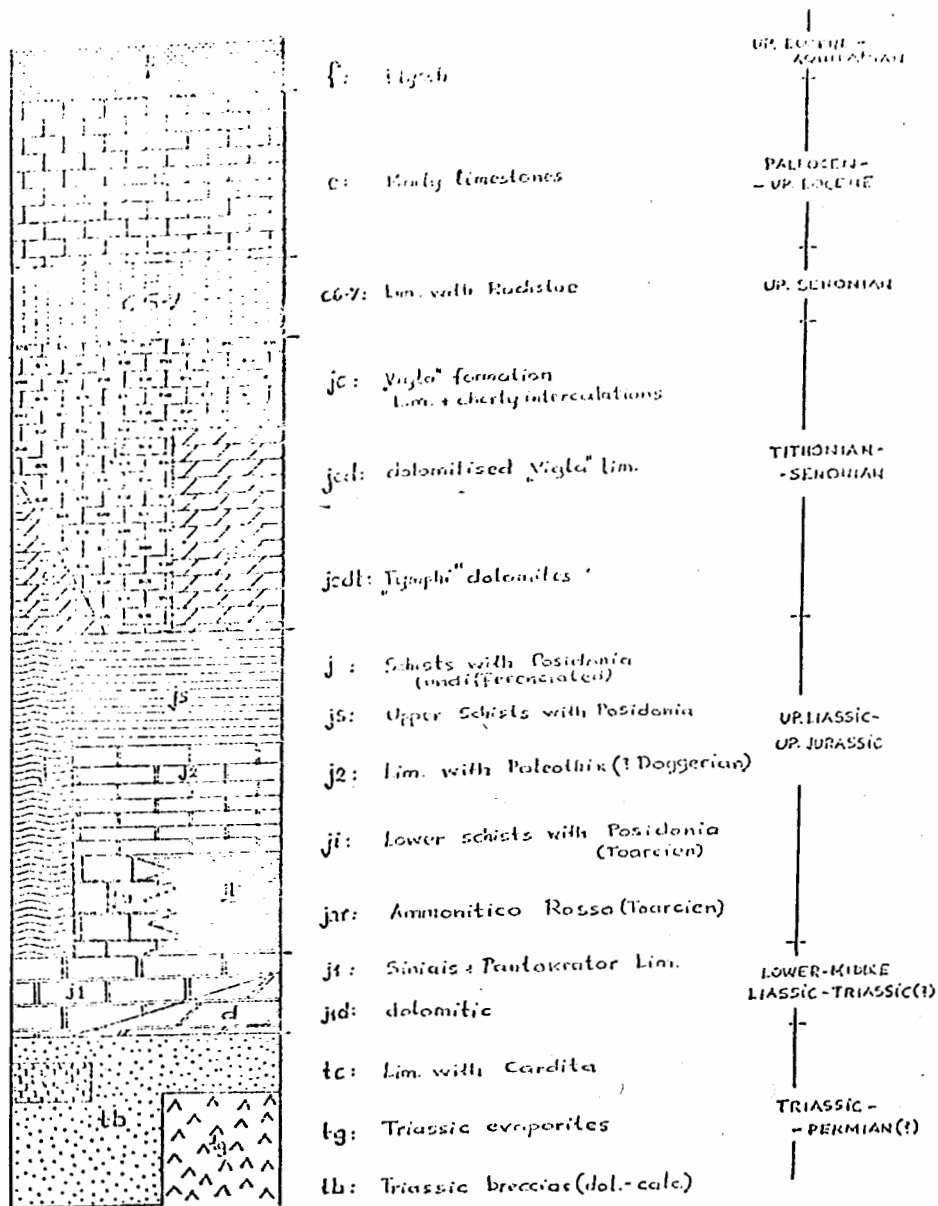 f: Flysch
e: limestones
c6-7: Lim. with Rudistae
jc: „Vigla" formation
Lim. + cherty intercalations
jcd: dolomitised „Vigla" lim.
jcdt: „Tymphi" dolomites
j : Schists with Posidonia
(undifferenciated)
js: Upper Schists with Posidonia
j2: Lim. with Paleothix (? Doggerian)
ji: Lower schists with Posidonia
(Toarcien)
jar: Ammonitico Rosso (Toarcien)
j1: Siniais + Pantokrator Lim.
j1d: dolomitic
tc: Lim. with Cardita
tg: Triassic evaporites
tb: Triassic breccias (dol.-calc.)
UP. EOCENE-
AQUITANIAN
PALEOCEN-
-UP. EOCENE
UP. SENONIAN
TITHONIAN-
-SENONIAN
UP. LIASSIC-
UP. JURASSIC
LOWER-MIDDLE
LIASSIC-TRIASSIC(?)
TRIASSIC-
-PERMIAN(?)
c6-7
js
j2
j1
d
tb
tg